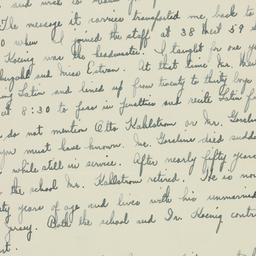 The message it carries transported me back to
0 when I joined the staff at 38 West 59 s
Koenig was the headmaster. I taught for one ye
and Miss Estram. At that time Mr.
Latin and lined up from twenty to thirty boys
at 8:30 to pass in penalties and recite Latin f
do not mention Otto Kahlstrom or Mr. Gosline
you must have known. Mr. Gosline died sudd
while still in service. After nearly fifty years
the school Mr. Kahlstrom retired. He is no
ty years of age and lives with his unmarried
Jersey. Both the school and Dr. Koenig contri
st.